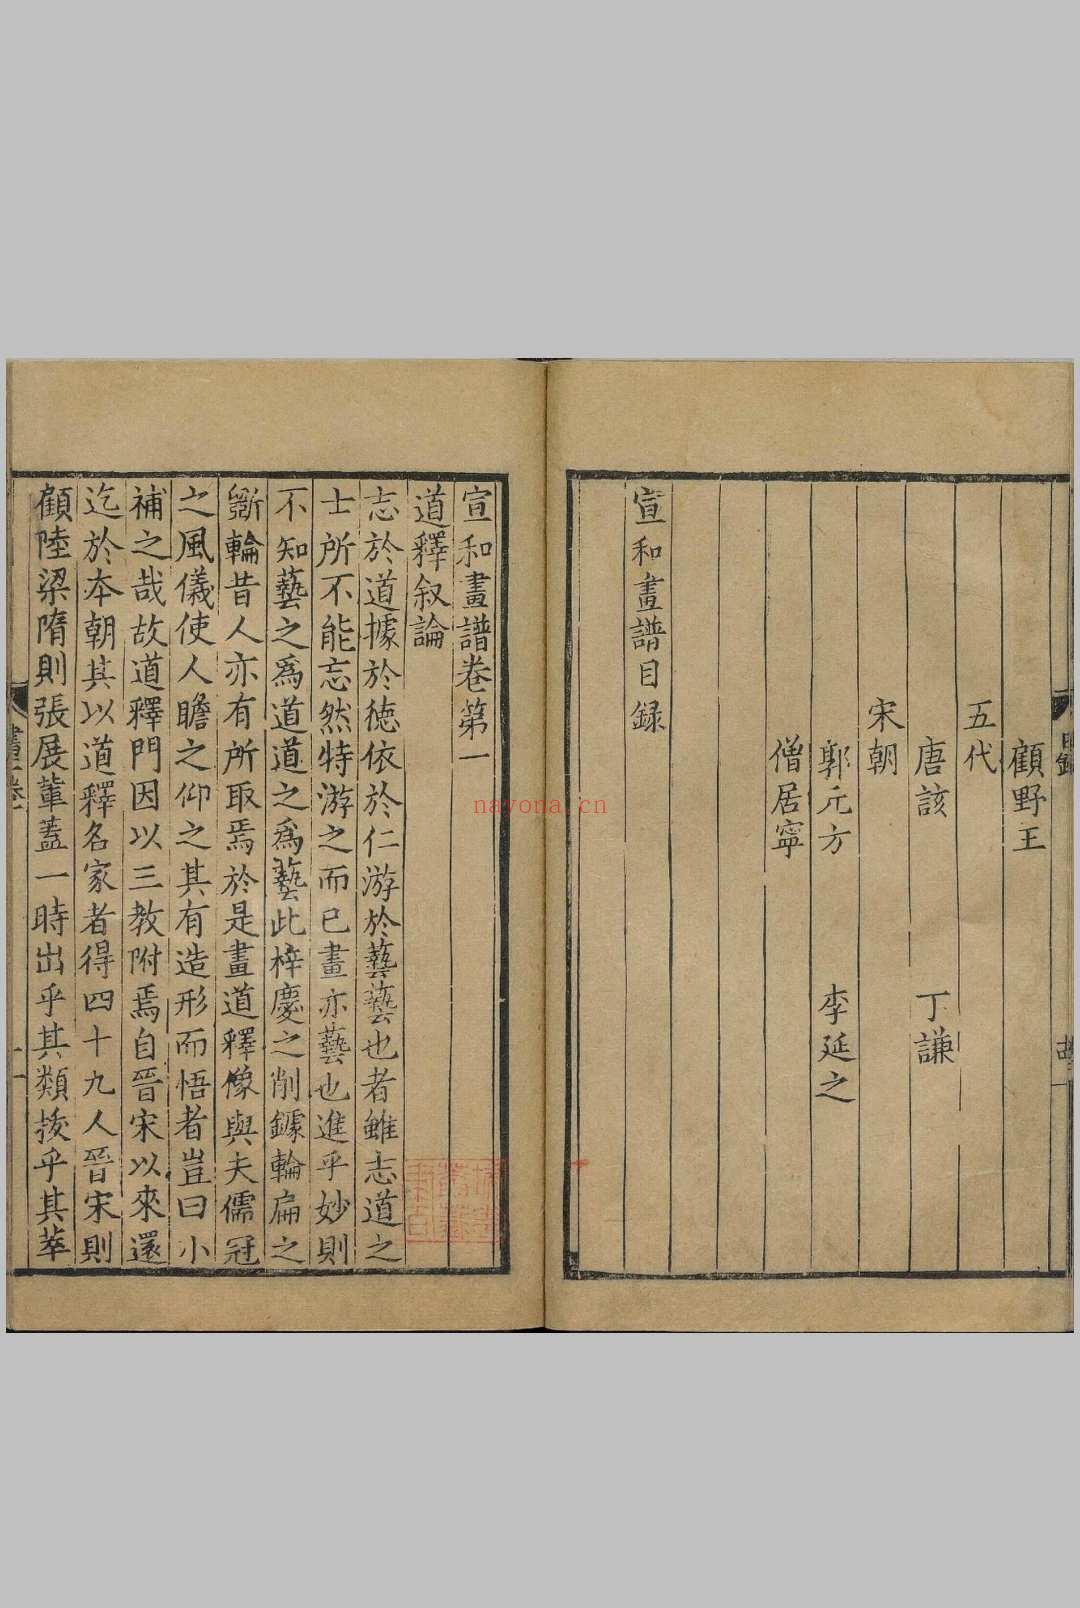 顧野王
五代
唐該 丁謙
宋朝
郭元方 李延之
僧居寧
宣和畫譜目録
宣和畫譜卷第一
道釋叙論
志於道據於徳依於仁游於藝藝也者雖志道之
士所不能忘然特游之而已畫亦藝也進乎妙則
不知藝之爲道道之爲藝此梓慶之削鐻輪扁之
斲輪昔人亦有所取焉於是畫道釋像與夫儒冠
之風儀使人瞻之仰之其有造形而悟者豈曰小
補之哉故道釋門因以三教附焉自晉宋以來還
迄於本朝其以道釋名家者得四十九人晉宋則
顧陸梁隋則張展輩蓋一時出乎其類拔乎其萃
nayona.cn